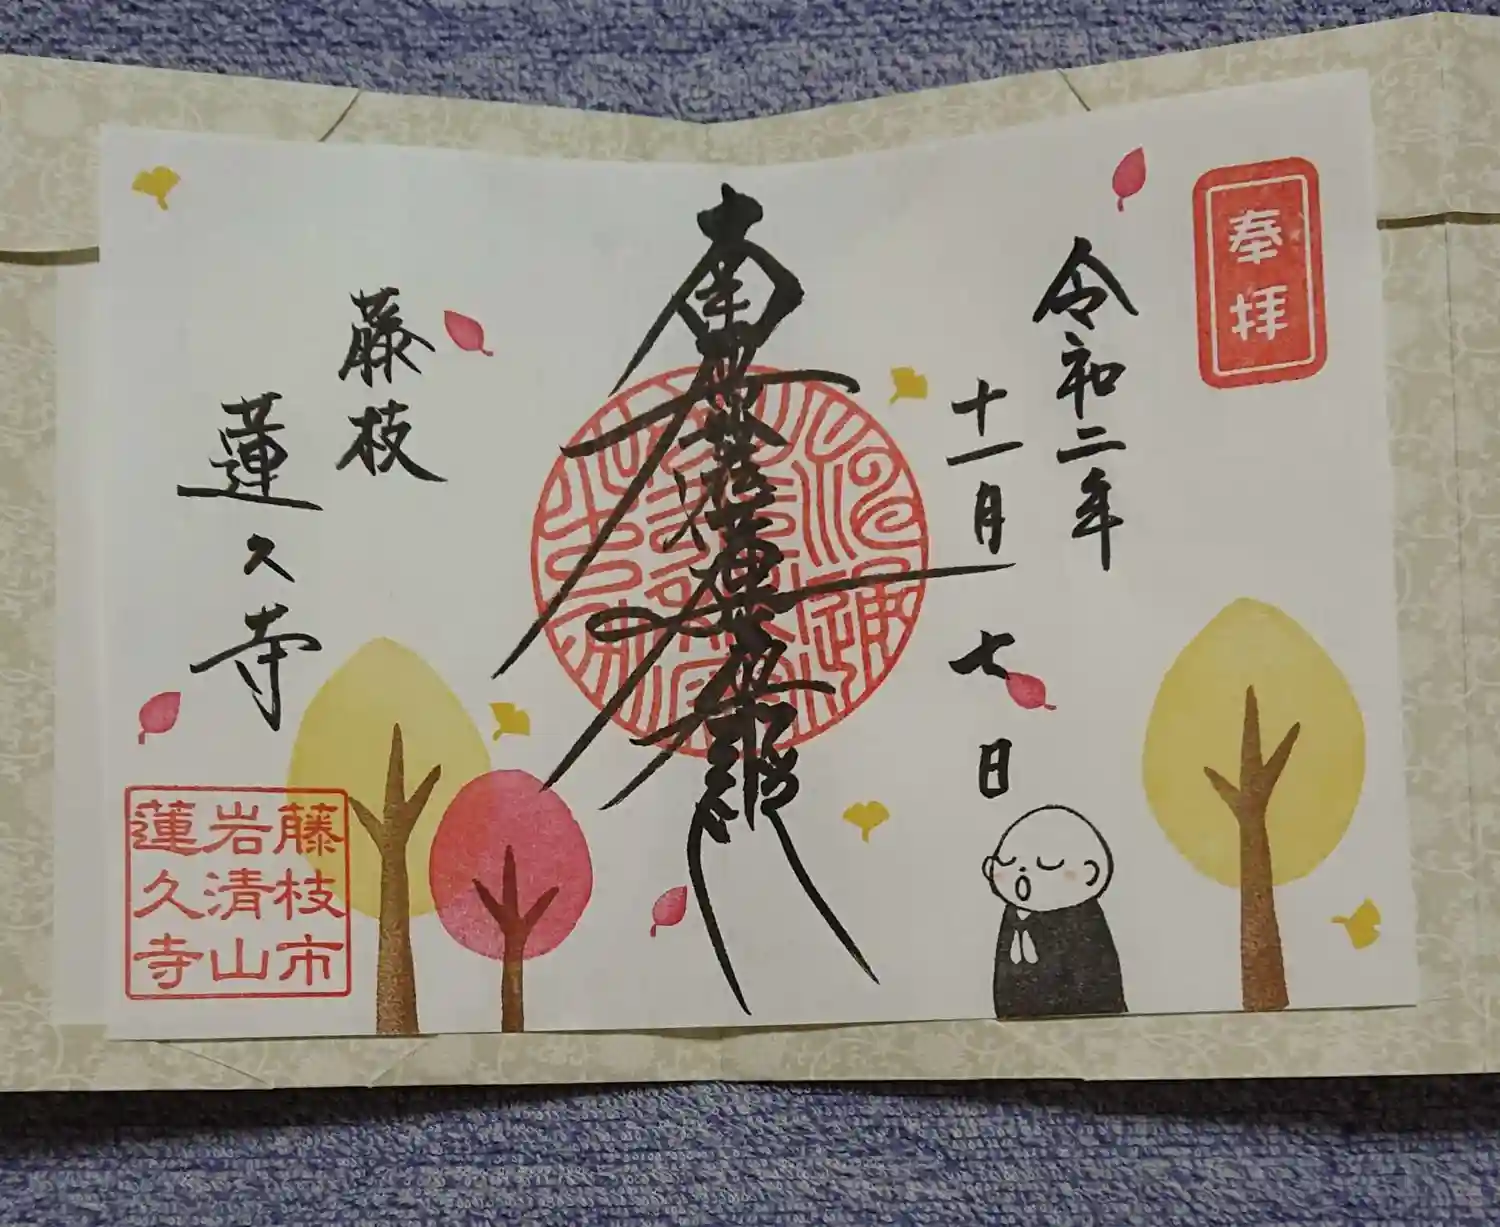 奉拝
令和二年
十一月七日
南無妙法蓮華経
藤枝
蓮久寺
藤枝市
岩清山
蓮久寺